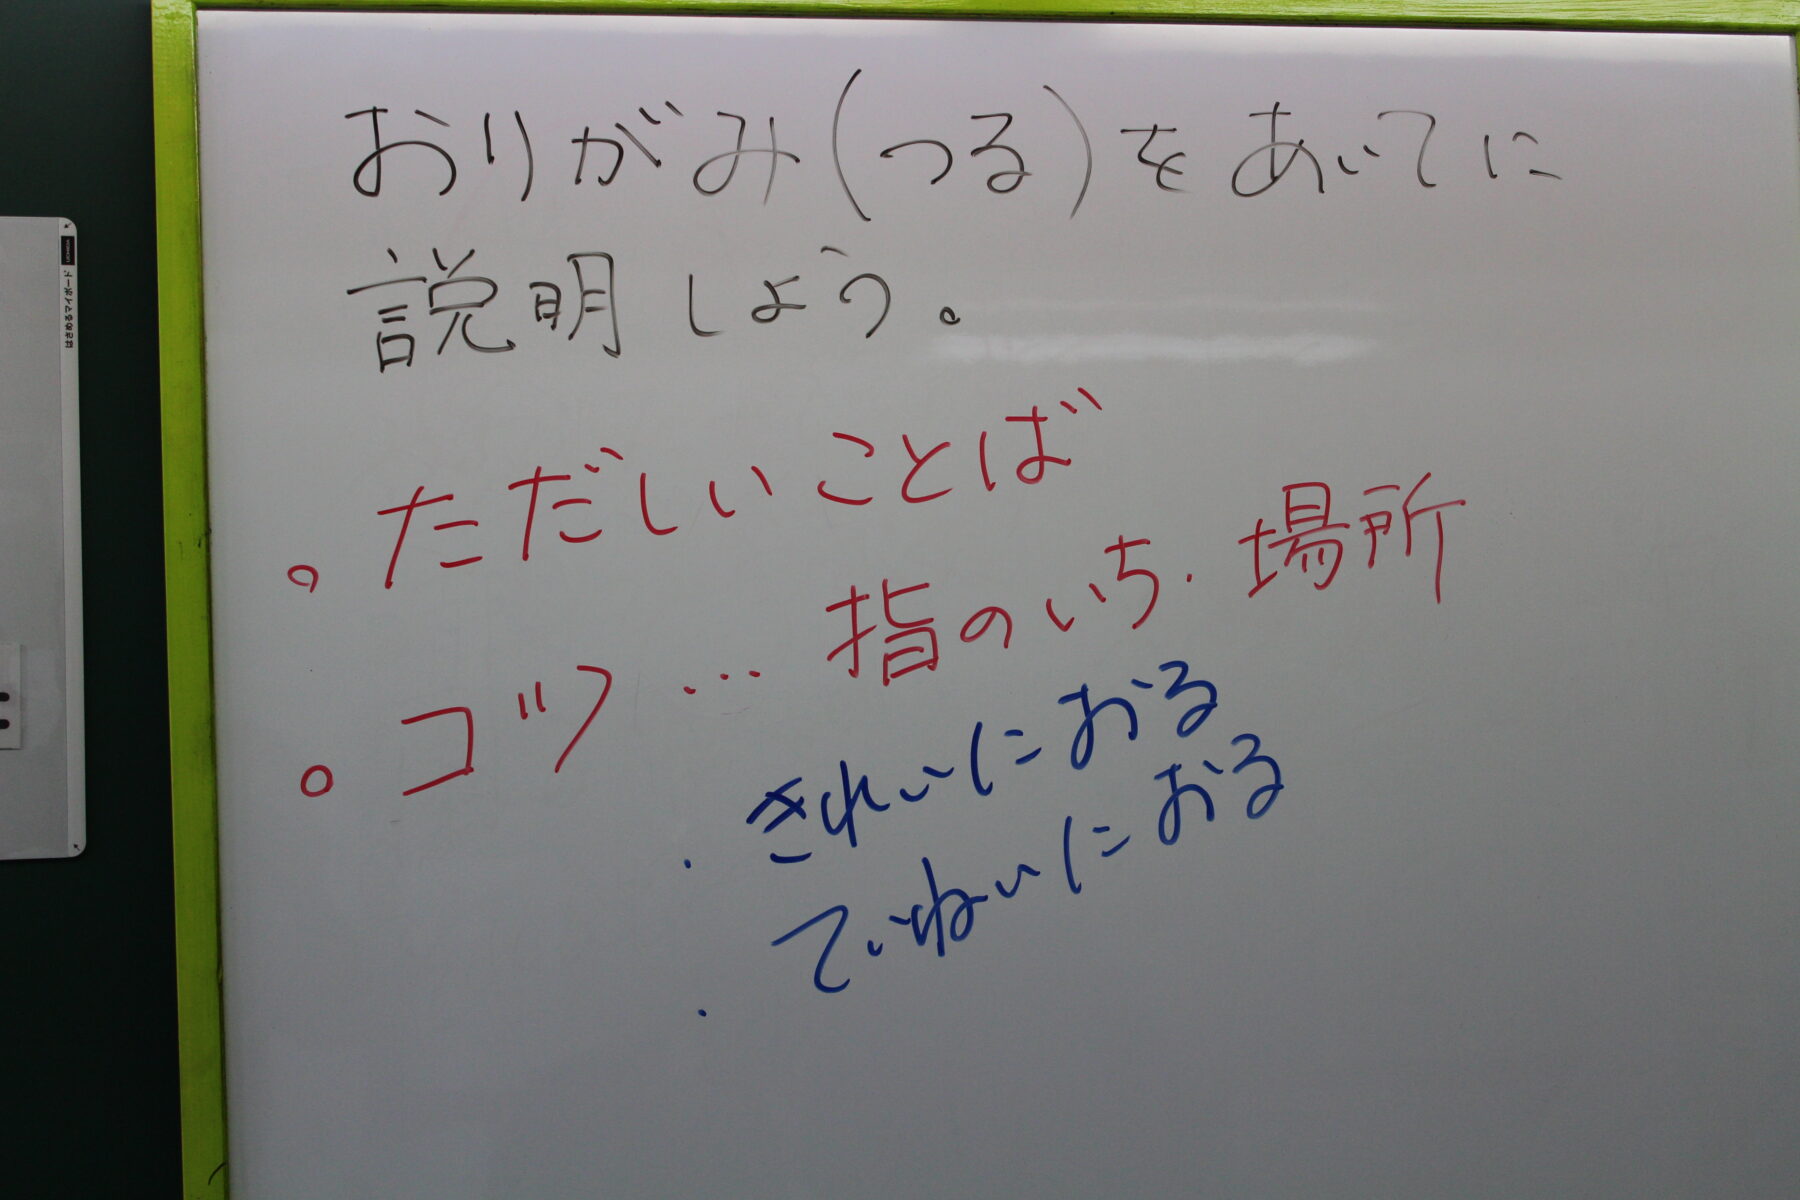 おりがみ(つる)をあいてに
説明しよう。
。ただしいことば
。コツ…指のいち・場所
・きれいにおる
・ていねいにおる
はさめるマイボード